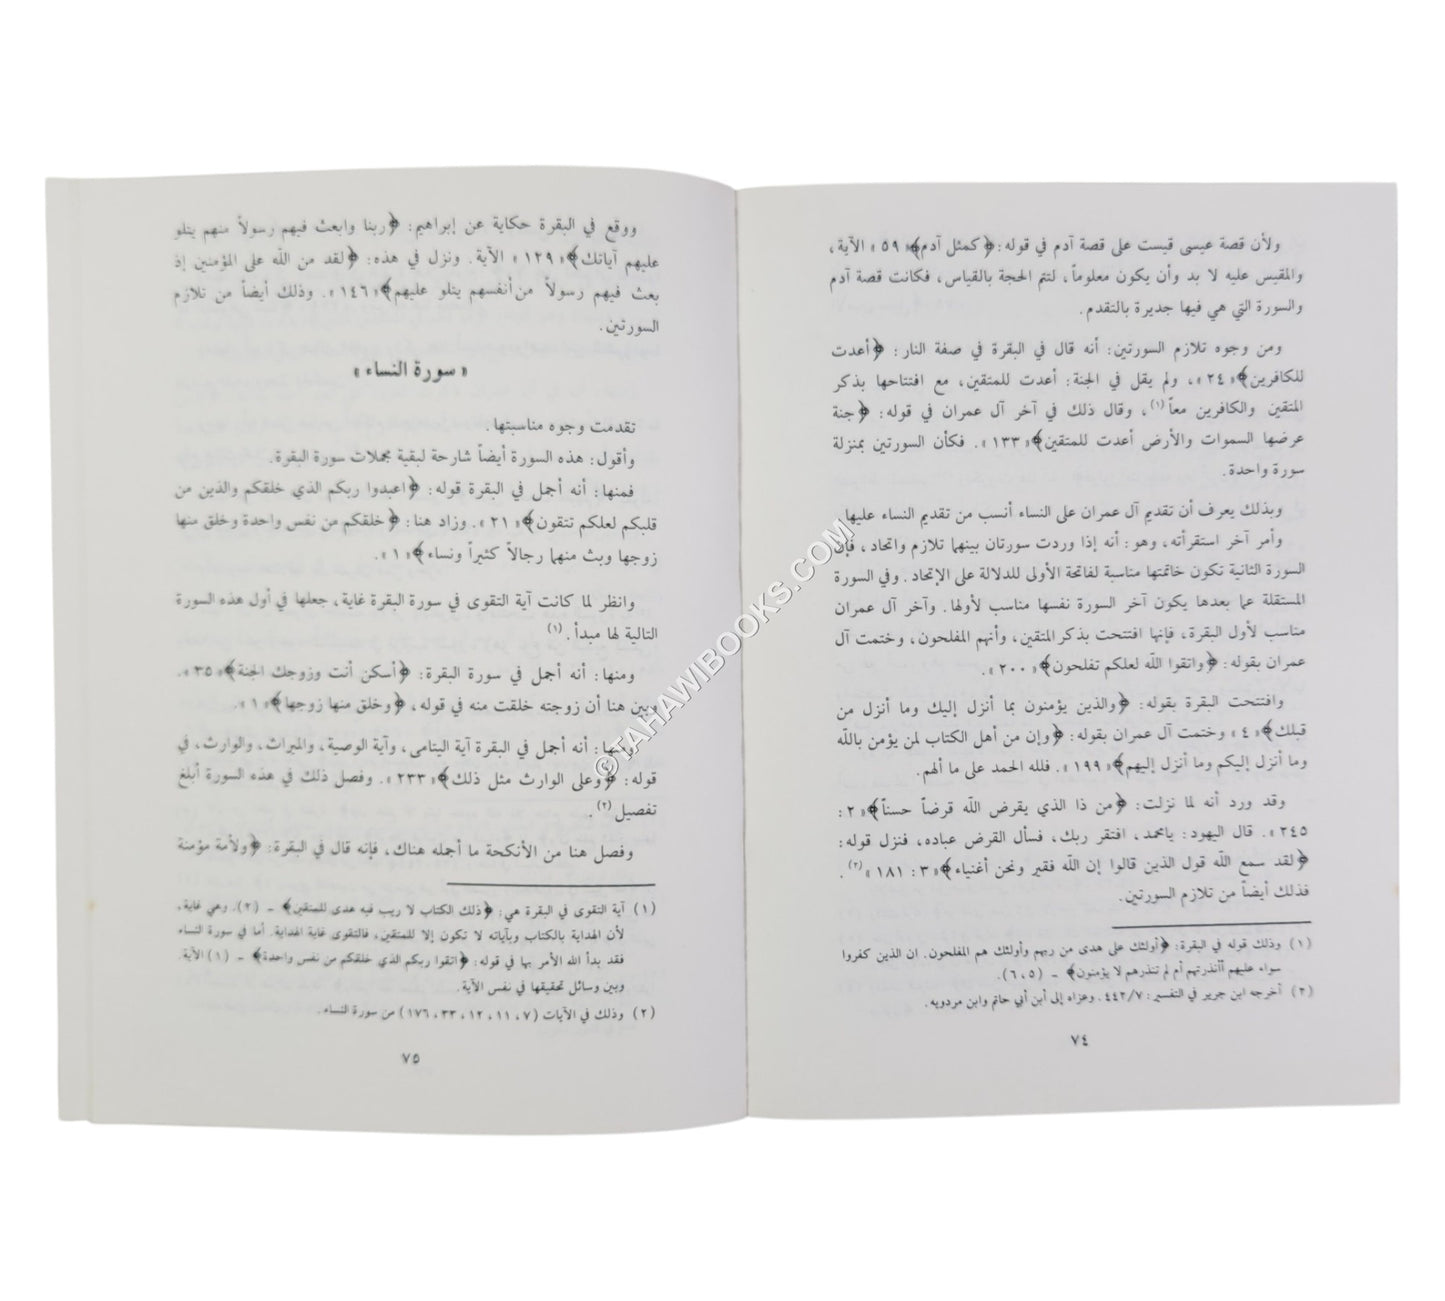 ولأن قصة عيسى قيست على قصة آدم في قوله: ﴿كمثل آدم﴾« ٥٩ » الآية،
والمقيس عليه لا بد وأن يكون معلوماً، لتتم الحجة بالقياس، فكانت قصة آدم
والسورة التي هي فيها جديرة بالتقدم.
ومن وجوه تلازم السورتين: أنه قال في البقرة في صفة النار: ﴿أعدت
للكافرين﴾« ٢٤ »، ولم يقل في الجنة: أعدت للمتقين، مع افتتاحها بذكر
المتقين والكافرين معاً(١)، وقال ذلك في آخر آل عمران في قوله: ﴿جنة
عرضها السموات والأرض أعدت للمتقين﴾« ١٣٣ ». فكأن السورتين بمنزلة
سورة واحدة.
وبذلك يعرف أن تقديم آل عمران على النساء أنسب من تقديم النساء عليها.
وأمر آخر استقرأته، وهو: أنه إذا وردت سورتان بينهما تلازم واتحاد، فإن
السورة الثانية تكون خاتمتها مناسبة لفاتحة الأولى للدلالة على الإتحاد. وفي السورة
المستقلة عما بعدها يكون آخر السورة نفسها مناسب لأولها. وآخر آل عمران
مناسب لأول البقرة، فإنها افتتحت بذكر المتقين، وأنهم المفلحون، وختمت آل
عمران بقوله: ﴿واتقوا الله لعلكم تفلحون﴾« ٢٠٠ ».
وافتتحت البقرة بقوله: ﴿والذين يؤمنون بما أنزل إليك وما أنزل من
قبلك﴾« ٤ » وختمت آل عمران بقوله: ﴿وإن من أهل الكتاب لمن يؤمن بالله
وما أنزل إليكم وما أنزل إليهم﴾« ١٩٩ ». فلله الحمد على ما ألهم.
وقد ورد أنه لما نزلت: ﴿من ذا الذي يقرض الله قرضاً حسناً﴾« ٢ :
٢٤٥ ». قال اليهود: يامحمد، افتقر ربك، فسأل القرض عباده، فنزل قوله:
﴿لقد سمع الله قول الذين قالوا إن الله فقير ونحن أغنياء﴾« ٣ : ١٨١ »(٢).
فذلك أيضاً من تلازم السورتين.
(١) وذلك قوله في البقرة: ﴿أولئك على هدى من ربهم وأولئك هم المفلحون. ان الذين كفروا
سواء عليهم أأنذرتهم أم لم تنذرهم لا يؤمنون﴾ - (٥، ٦).
(٢) أخرجه ابن جرير في التفسير: ٤٤٢/٧. وعزاه إلى ابن أبي حاتم وابن مردويه.
٧٤
ووقع في البقرة حكاية عن إبراهيم: ﴿ربنا وابعث فيهم رسولاً منهم يتلو
عليهم آياتك﴾« ١٢٩ » الآية. ونزل في هذه: ﴿لقد من الله على المؤمنين إذ
بعث فيهم رسولاً من أنفسهم يتلو عليهم﴾« ١٤٦ ». وذلك أيضاً من تلازم
السورتين.
« سورة النساء »
تقدمت وجوه مناسبتها.
وأقول: هذه السورة أيضاً شارحة لبقية مجملات سورة البقرة.
فمنها: أنه أجمل في البقرة قوله: ﴿اعبدوا ربكم الذي خلقكم والذين من
قلبكم لعلكم تتقون﴾« ٢١ ». وزاد هنا: ﴿خلقكم من نفس واحدة وخلق منها
زوجها وبث منهما رجالاً كثيراً ونساء﴾« ١ ».
وانظر لما كانت آية التقوى في سورة البقرة غاية، جعلها في أول هذه السورة
التالية لها مبدأ.(١)
ومنها: أنه أجمل في سورة البقرة: ﴿أسكن أنت وزوجك الجنة﴾« ٣٥ ».
وبين هنا أن زوجته خلقت منه في قوله، ﴿وخلق منها زوجها﴾« ١ ».
ومنها: أنه أجمل في البقرة آية اليتامى، وآية الوصية، والميراث، والوارث، في
قوله: ﴿وعلى الوارث مثل ذلك﴾« ٢٣٣ ». وفصل ذلك في هذه السورة أبلغ
تفصيل(٢).
وفصل هنا من الأنكحة ما أجمله هناك، فإنه قال في البقرة: ﴿ولأمة مؤمنة
(١) آية التقوى في البقرة هي: ﴿ذلك الكتاب لا ريب فيه هدى للمتقين﴾ - (٢). وهي غاية،
لأن الهداية بالكتاب وبآياته لا تكون إلا للمتقين، فالتقوى غاية الهداية. أما في سورة النساء
فقد بدأ الله الأمر بها في قوله: ﴿اتقوا ربكم الذي خلقكم من نفس واحدة﴾ - (١) الآية.
وبين وسائل تحقيقها في نفس الآية.
(٢) وذلك في الآيات (٧، ١١، ١٢، ٣٣، ١٧٦) من سورة النساء.
٧٥
©TAHAWIBOOKS.COM